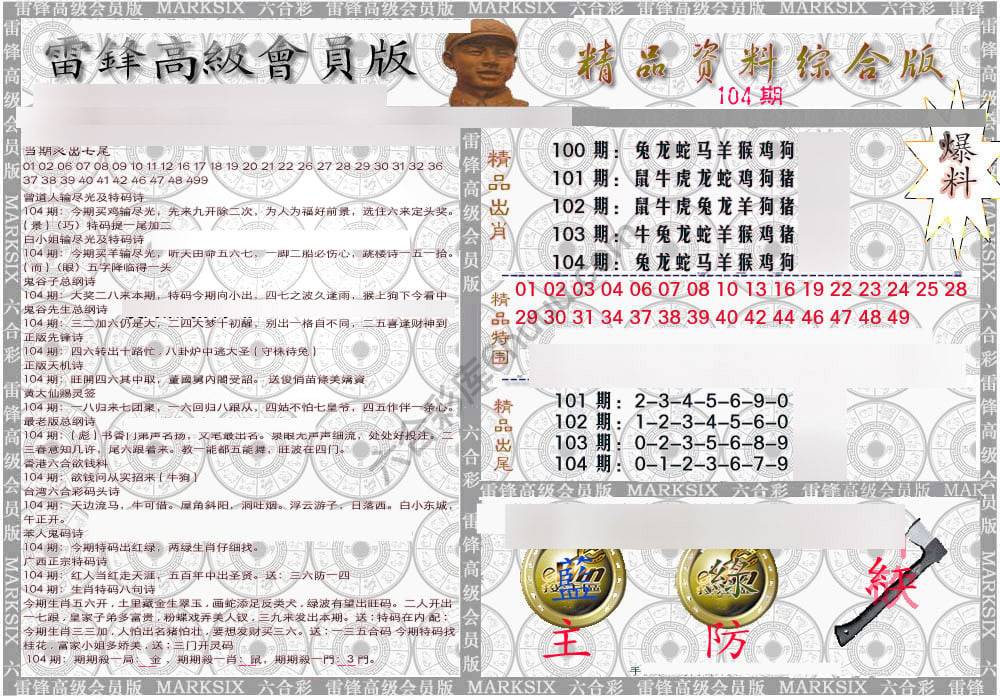 雷锋高级会员版 MARKSIX 六合彩 雷锋高级会员版 MARKSIX 六合彩 雷锋高级会员版 MARKSIX 六合彩 雷锋
雷鋒高級會員版
精品资料综合版
104期
爆料
01 02 06 07 08 09 10 11 12 16 17 18 19 20 21 22 26 27 28 29 30 31 32 36
37 38 39 40 41 42 46 47 48 499
曾道人输尽光及特码诗
104期：今期买鸡输尽光，先来九开除二次，为人为福好前景，选任六来定头奖。
{景}(巧）特码提一尾加二
白小姐输尽光及特码诗
104期：今期买羊输尽光，听天由命五六七，一脚二船必伤心，跳楼诗一五一拾。
{而}(眼）五字降临得一头
鬼谷子总纲诗
104期：大奖二八来本期，特码今期向小出，四七之波久逢雨，猴上狗下今看中
鬼谷先生总纲诗
104期：三二加六仍是大，二四大梦十初醒，别出一格自不同，二五喜逢财神到
正版先锋诗
104期：四六转出十路忙，八卦炉中逃大圣{守株待免}
正版天机诗
104期：旺開四六其中取，董國舅內閣受詔。送俊俏苗條美嬌資
黄大仙赐灵签
104期：一八归来七团聚，一六回归八跟从，四姑不怕七皇爷，四五作伴一条心。
最老版总纲诗
104期：{彪}书香门第声名扬，文笔最出名。泉眼无声声细流，处处好投注。二
三春意知几许，尾六跟着来。教一能都五能舞，旺波在四门。
香港六合欲钱料
104期：欲钱问从实招来{牛狗}
台湾六合彩码头诗
104期：天边流马，牛可借。屋角斜阳，涧吐烟。浮云游子，日落西。白小东城，
午正开。
苯人鬼码诗
104期：今期特码出红绿，两绿生肖仔细找。
广西正宗特码诗
104期：红人当红走天涯，五百年中出圣贤。送：三六防一四
104期：生肖特码八句诗
今期生肖五六开，土里藏金生翠玉，画蛇添足反类犬，绿波有望出旺码。二人开出
一七跟，皇家子弟多富贵，粉蝶戏弄美人钗，三九来发出本期。送：特码在内 配：
今期生肖三三加，人怕出名猪怕壮，要想发财买三六。送：一三五合码 今期特码找
桂花，富家小姐多娇美，送：三门开灵码
104期：期期殺一局：金，期期殺一肖：鼠，期期殺一門：3門。
精品出肖
100期：兔龙蛇马羊猴鸡狗
101期：鼠牛虎龙蛇鸡狗猪
102期：鼠牛虎兔龙羊狗猪
103期：牛兔龙蛇羊猴鸡猪
104期：兔龙蛇马羊猴鸡狗
精品特围
01 02 03 04 06 07 08 10 13 16 19 22 23 24 25 28
29 30 31 34 37 38 39 40 42 44 46 47 48 49
精品出尾
101期：2-3-4-5-6-9-0
102期：1-2-3-4-0-6-0
103期：0-2-3-5-6-8-9
104期：0-1-2-3-6-7-9
雷锋高级会员版 MARKSIX 六合彩 雷锋高级会员版 MAR
藍 綠 紅
主 防
手
雷锋高级会员版 MARKSIX 六合彩 雷锋高级会员版 MARKSIX 六合彩 雷锋高级会员版 MARKSIX 六合彩 雷锋